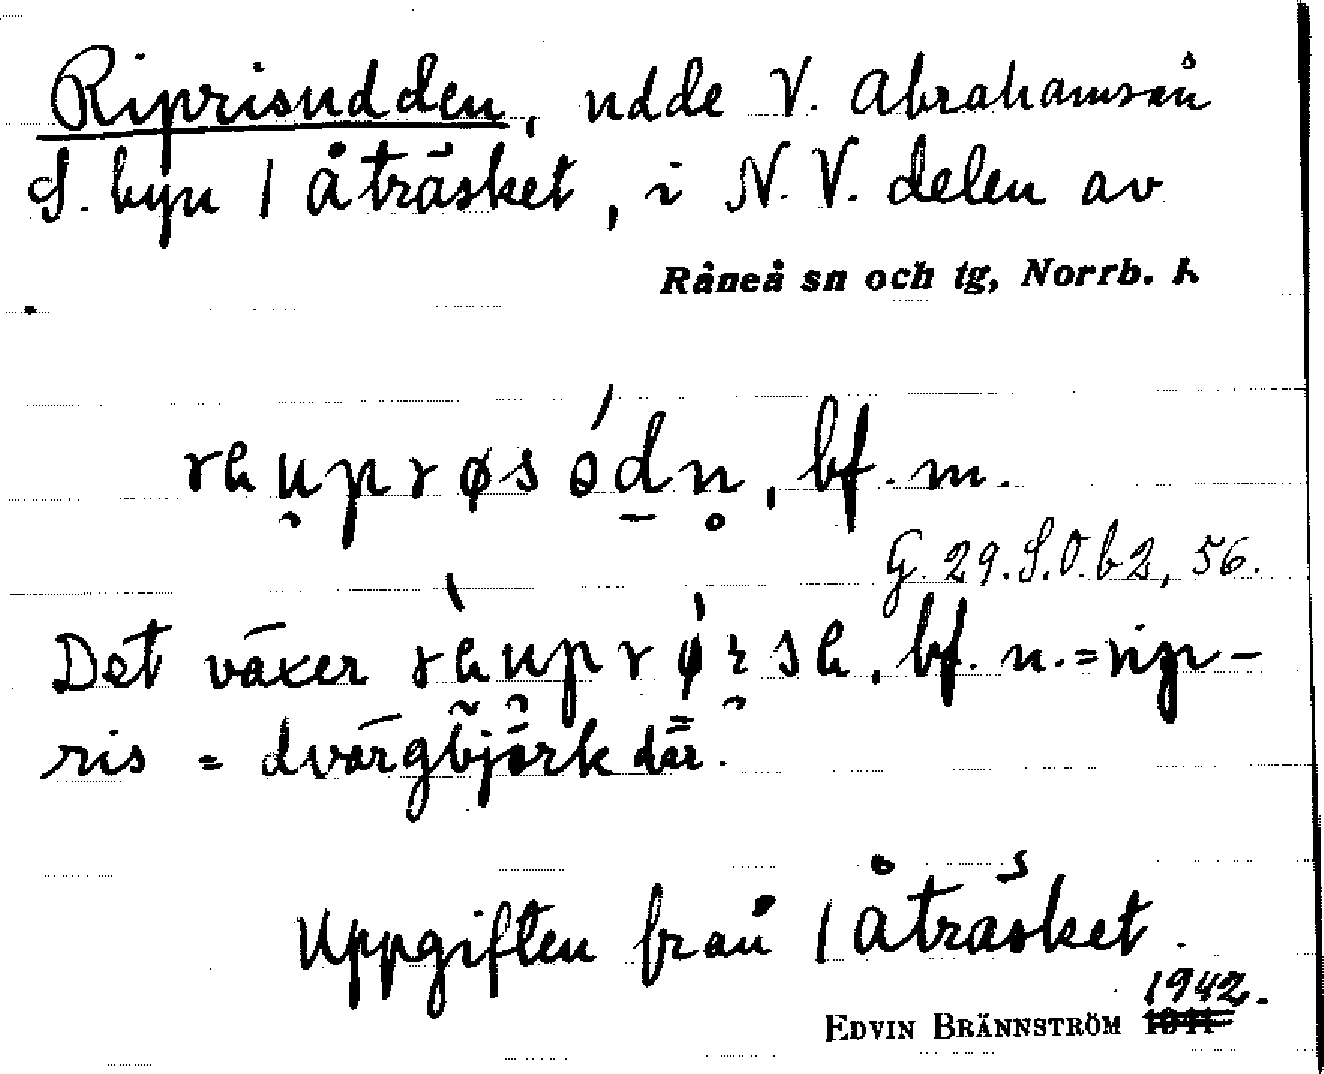 Riprisudden, udde V. Abrahamsån
S. byn 1 åträsket, i N.V. delen av
Råneå sn och tg, Norrb. l.
bf. m.
G. 29. S.O. b2, 56.
Det växer bf. n. = rip-
ris = dvärgbjörk där.
Uppgiften från 1 åträsket.
1942.
EDVIN BRÄNNSTRÖM 1941